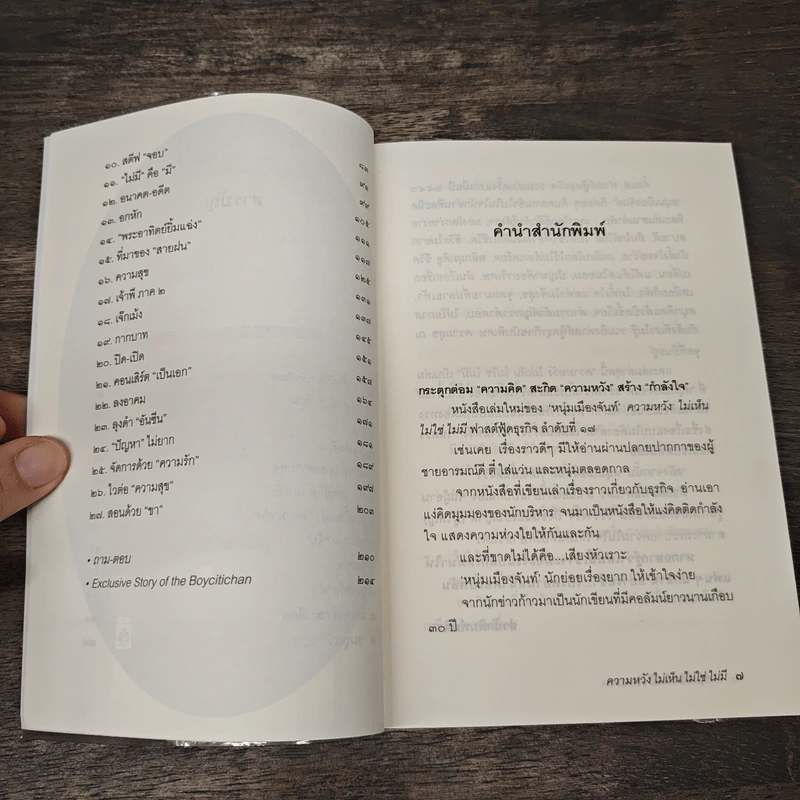 ๑๐. สตีฟ "จอบ" ๘๓
๑๑. "ไม่มี" คือ "มี" ๙๑
๑๒. อนาคต-อดีต ๙๙
๑๓. อกหัก ๑๐๕
๑๔. "พระอาทิตย์ยิ้มแฉ่ง" ๑๑๑
๑๕. ที่มาของ "สายฝน" ๑๑๘
๑๖. ความสุข ๑๒๕
๑๗. เจ้าพี ภาค ๒ ๑๓๑
๑๘. เจ๊กเม้ง ๑๓๘
๑๙. กากบาท ๑๔๕
๒๐. ปิด-เปิด ๑๕๑
๒๑. คอนเสิร์ต "เป็นเอก" ๑๕๘
๒๒. ลุงอาคม ๑๖๔
๒๓. ลุงดำ "อันซีน" ๑๗๑
๒๔. "ปัญหา" ไม่ยาก ๑๘๑
๒๕. จัดการด้วย "ความรัก" ๑๘๙
๒๖. ไวต่อ "ความสุข" ๑๙๘
๒๗. สอนด้วย "ขา" ๒๐๓
• ถาม-ตอบ ๒๑๐
• Exclusive Story of the Boycitichan ๒๑๔
คำนำสำนักพิมพ์
กระตุกต่อม "ความคิด" สะกิด "ความหวัง" สร้าง "กำลังใจ"
หนังสือเล่มใหม่ของ 'หนุ่มเมืองจันท์' ความหวัง ไม่เห็น
ไม่ใช่ ไม่มี ฟาสต์ฟู้ดธุรกิจ ลำดับที่ ๑๗
เช่นเคย เรื่องราวดีๆ มีให้อ่านผ่านปลายปากกาของผู้
ชายอารมณ์ดี ตี๋ ใส่แว่น และหนุ่มตลอดกาล
จากหนังสือที่เขียนเล่าเรื่องราวเกี่ยวกับธุรกิจ อ่านเอา
แง่คิดมุมมองของนักบริหาร จนมาเป็นหนังสือให้แง่คิดติดกำลัง
ใจ แสดงความห่วงใยให้กันและกัน
และที่ขาดไม่ได้คือ...เสียงหัวเราะ
'หนุ่มเมืองจันท์' นักย่อยเรื่องยาก ให้เข้าใจง่าย
จากนักข่าวก้าวมาเป็นนักเขียนที่มีคอลัมน์ยาวนานเกือบ
๓๐ ปี
ความหวัง ไม่เห็น ไม่ใช่ ไม่มี ๗